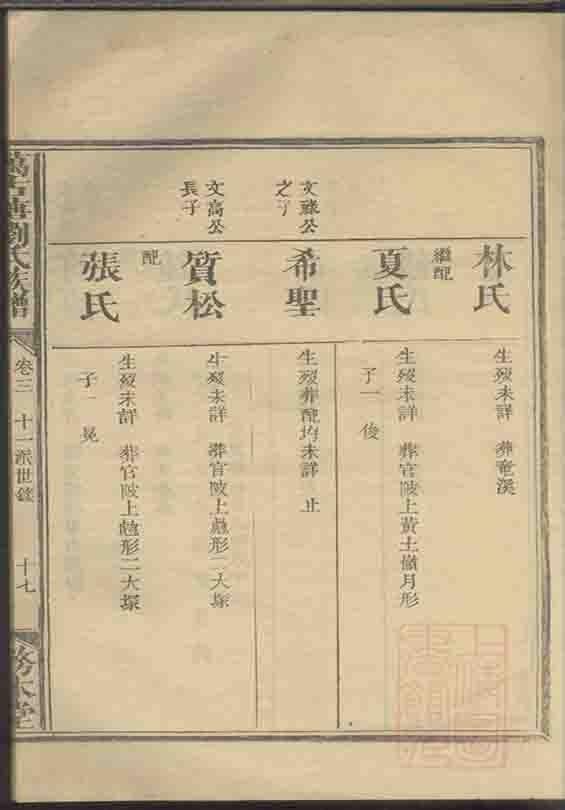 林氏
生歿未詳 葬竜溪
繼配
夏氏
生歿未詳 葬官陂上黃土嶺月形
子一 俊
文祿公
之子
希聖
生歿葬配均未詳 止
文高公
長子
質松
生歿未詳 葬官陂上魁形二大塚
配
張氏
生歿未詳 葬官陂上魁形二大塚
子一 晃
劉氏族譜
卷三 十一派世錄
十七
務本堂
上海圖
書館藏